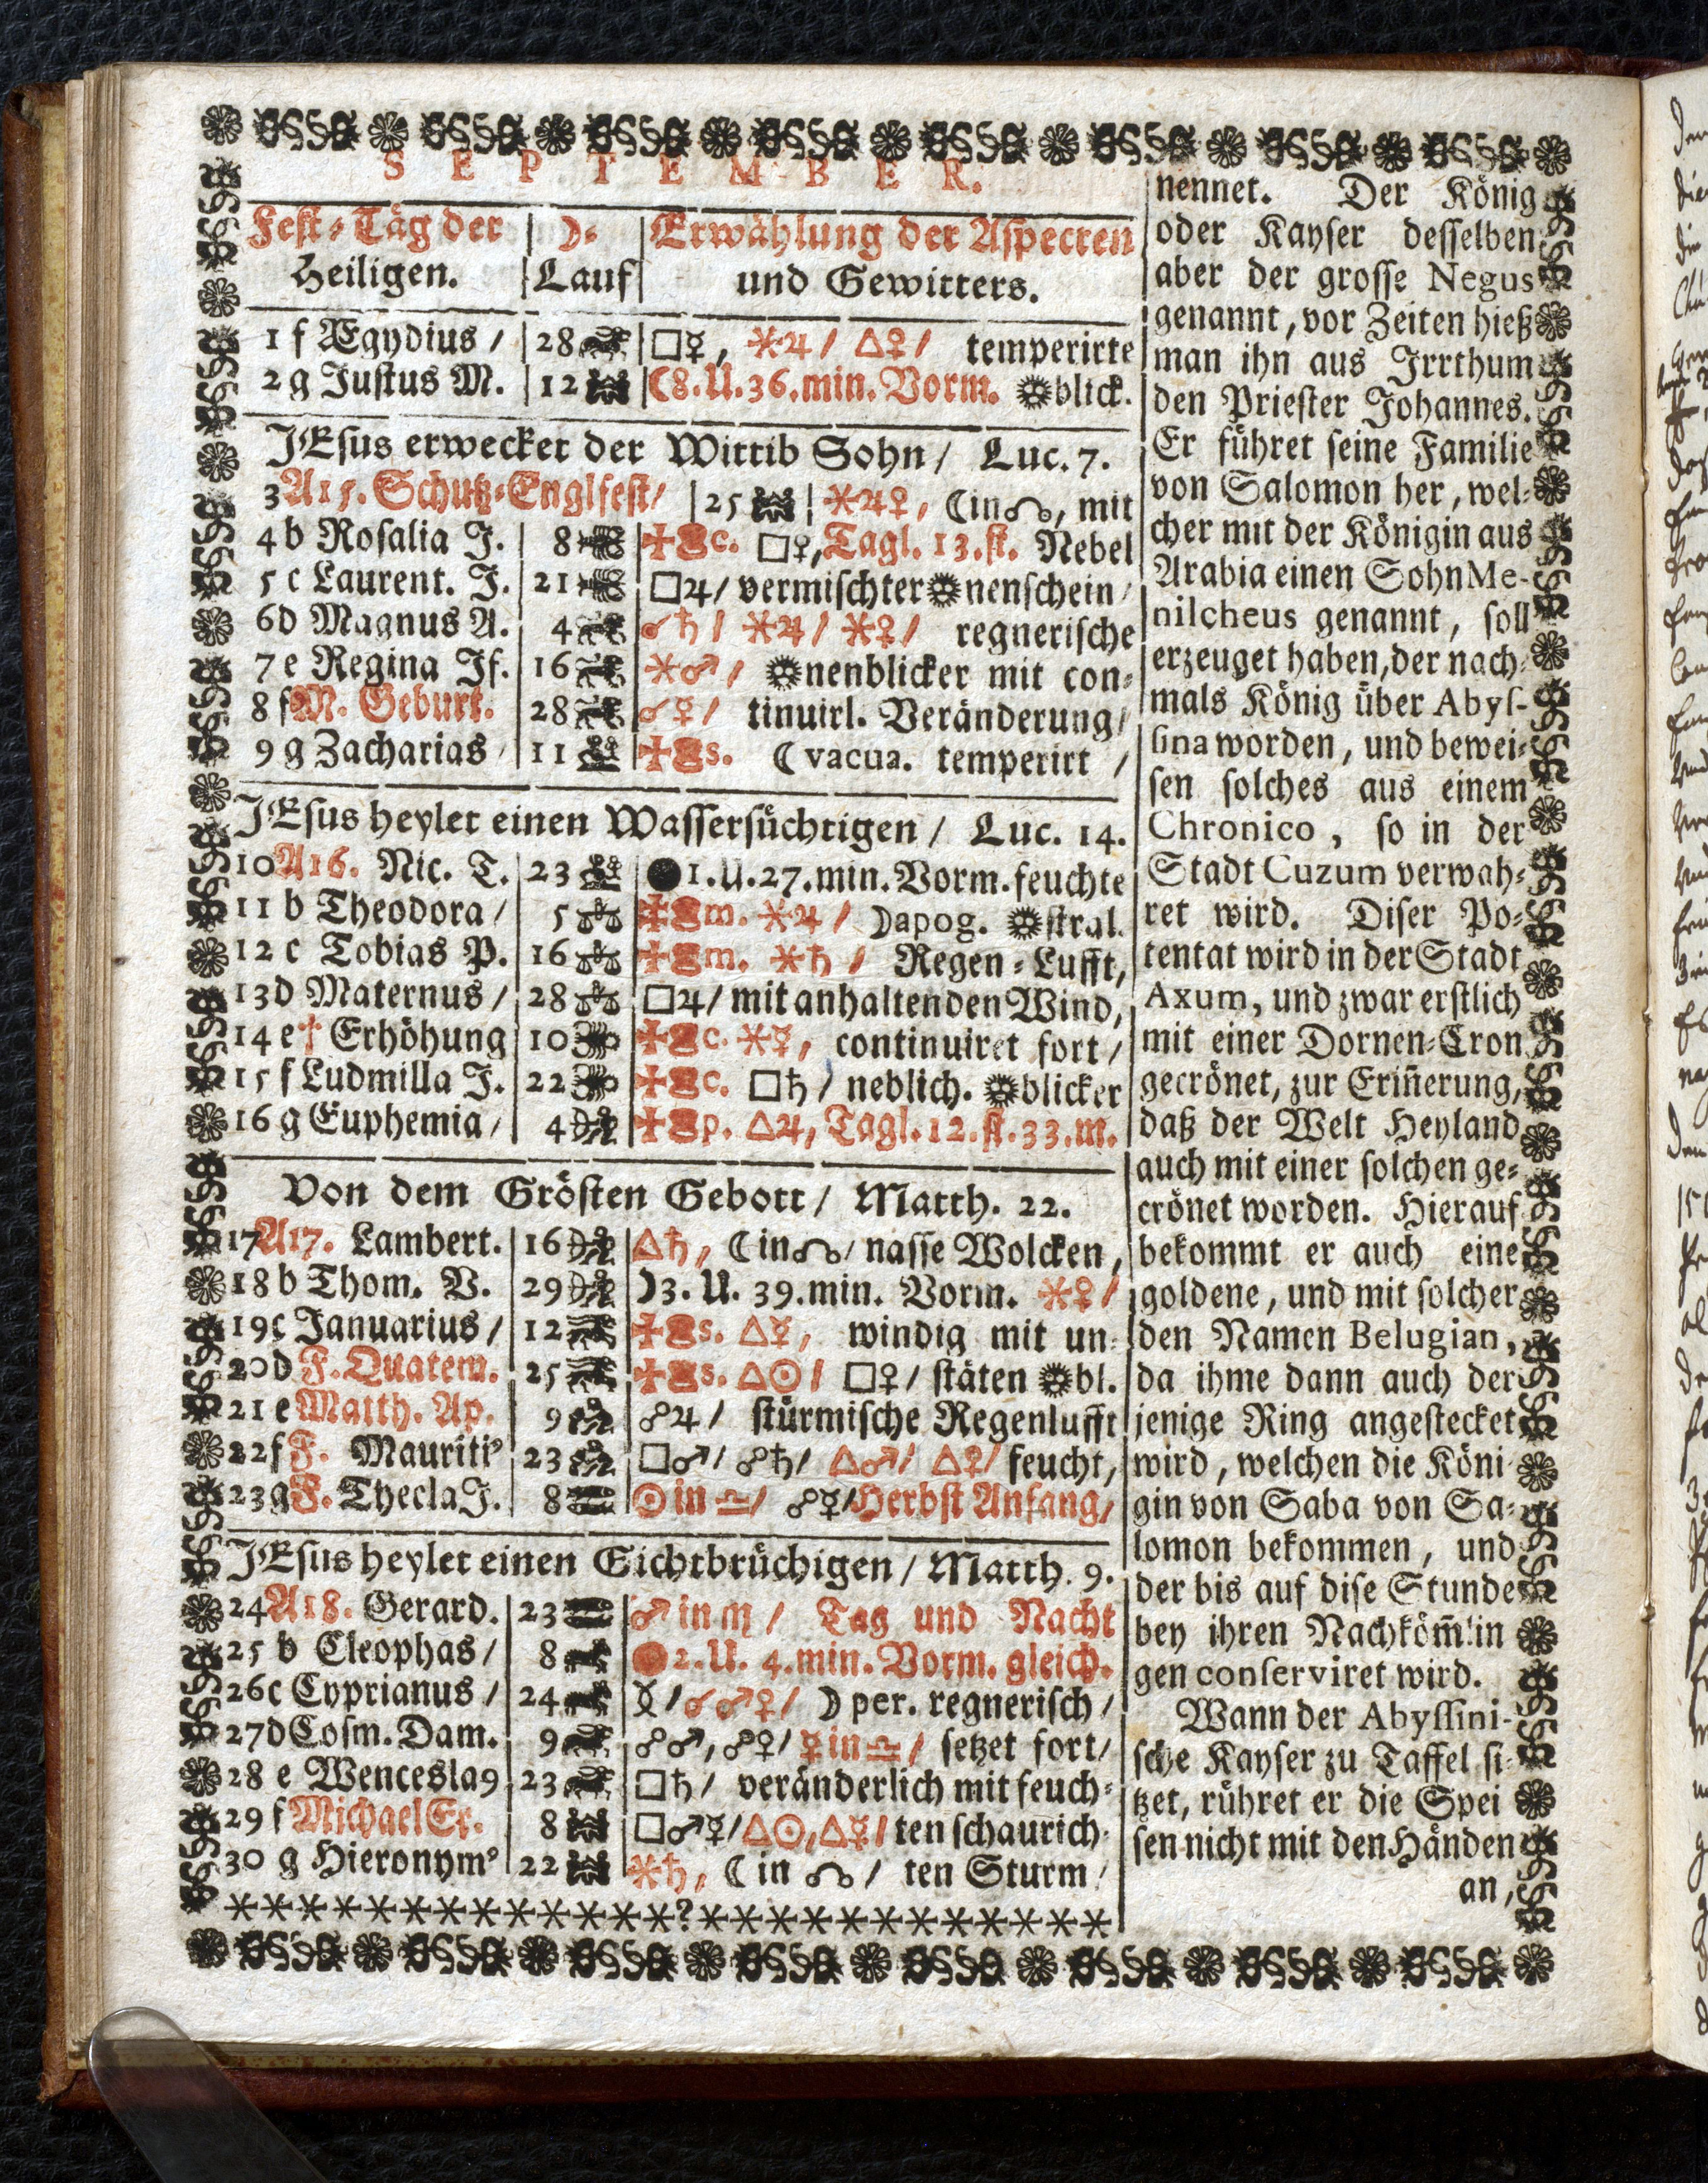 SEPTEMBER.
Fest-Täg der Heiligen. | ☽-Lauf | Erwählung der Aspecten und Gewitters.
1 f Ægydius / 28 □☿, ⚹♃ / △♀ / temperirte
2 g Justus M. 12 ☾8.U.36.min.Vorm. ☼blick.
JEsus erwecket der Wittib Sohn / Luc. 7.
3 A15. Schutz-Englfest / 25 ⚹♃♀, ☾in☊, mit
4 b Rosalia J. 8 c. □♀, Tagl. 13.st. Nebel
5 c Laurent. J. 21 □♃ / vermischter☼nenschein /
6 d Magnus A. 4 ☌♄ / ⚹♃ / ⚹♀ / regnerische
7 e Regina Jf. 16 ⚹♂ / ☼nenblicker mit con-
8 f M. Geburt. 28 ☌♀ / tinuirl. Veränderung /
9 g Zacharias / 11 s. ☾vacua. temperirt /
JEsus heylet einen Wassersüchtigen / Luc. 14.
10 A16. Nic. T. 23 ●1.U.27.min.Vorm.feuchte
11 b Theodora / 5 m. ⚹♃ / ☽apog. ☼stral.
12 c Tobias P. 16 m. ⚹♄ / Regen-Lufft,
13 d Maternus / 28 □♃ / mit anhaltenden Wind,
14 e † Erhöhung 10 c. ⚹☿, continuiret fort /
15 f Ludmilla J. 22 c. □♄ / neblich. ☼blicker
16 g Euphemia / 4 p. △♃, Tagl.12.st.33.m.
Von dem Grösten Gebott / Matth. 22.
17 A17. Lambert. 16 △♄, ☾in☊ / nasse Wolcken,
18 b Thom. V. 29 ☽3.U.39.min. Vorm. ⚹♀ /
19 c Januarius / 12 s. △☿, windig mit un-
20 d F. Quatem. 25 s. △☉ / □♀ / stäten ☼bl.
21 e Matth. Ap. 9 ☍♃ / stürmische Regenlufft
22 f F. Mauriti⁹ 23 □♂ / ☍♄ / △♂ / △♀ / feucht,
23 g F. Thecla J. 8 ☉in ♎ / ☍☿ / Herbst Anfang /
JEsus heylet einen Gichtbrüchigen / Matth. 9.
24 A18. Gerard. 23 ♂ in ♏ / Tag und Nacht
25 b Cleophas / 8 ●2.U. 4.min.Vorm. gleich.
26 c Cyprianus / 24 / ☌♂♀ / ☽per. regnerisch /
27 d Cosm. Dam. 9 ☍♂, ☍♀ / ☿in♎ / setzet fort /
28 e Wencesla9 23 □♄ / veränderlich mit feuch-
29 f Michael Er. 8 □♂☿ / △☉, △☿ / ten schaurich-
30 g Hieronym⁹ 22 ⚹♄, ☾in ☊ / ten Sturm /
nennet. Der König
oder Kayser desselben
aber der grosse Negus
genannt, vor Zeiten hieß
man ihn aus Irrthum
den Priester Johannes.
Er führet seine Familie
von Salomon her, wel-
cher mit der Königin aus
Arabia einen Sohn Me-
nilcheus genannt, soll
erzeuget haben, der nach-
mals König über Abys-
sina worden, und bewei-
sen solches aus einem
Chronico, so in der
Stadt Cuzum verwah-
ret wird. Diser Po-
tentat wird in der Stadt
Axum, und zwar erstlich
mit einer Dornen-Cron
gecrönet, zur Erin̄erung,
daß der Welt Heyland
auch mit einer solchen ge-
crönet worden. Hierauf
bekommt er auch eine
goldene, und mit solcher
den Namen Belugian,
da ihme dann auch der
jenige Ring angestecket
wird, welchen die Köni-
gin von Saba von Sa-
lomon bekommen, und
der bis auf dise Stunde
bey ihren Nachköm̄lin
gen conserviret wird.
Wann der Abyssini-
sche Kayser zu Taffel si-
tzet, rühret er die Spei
sen nicht mit den Händen
an,